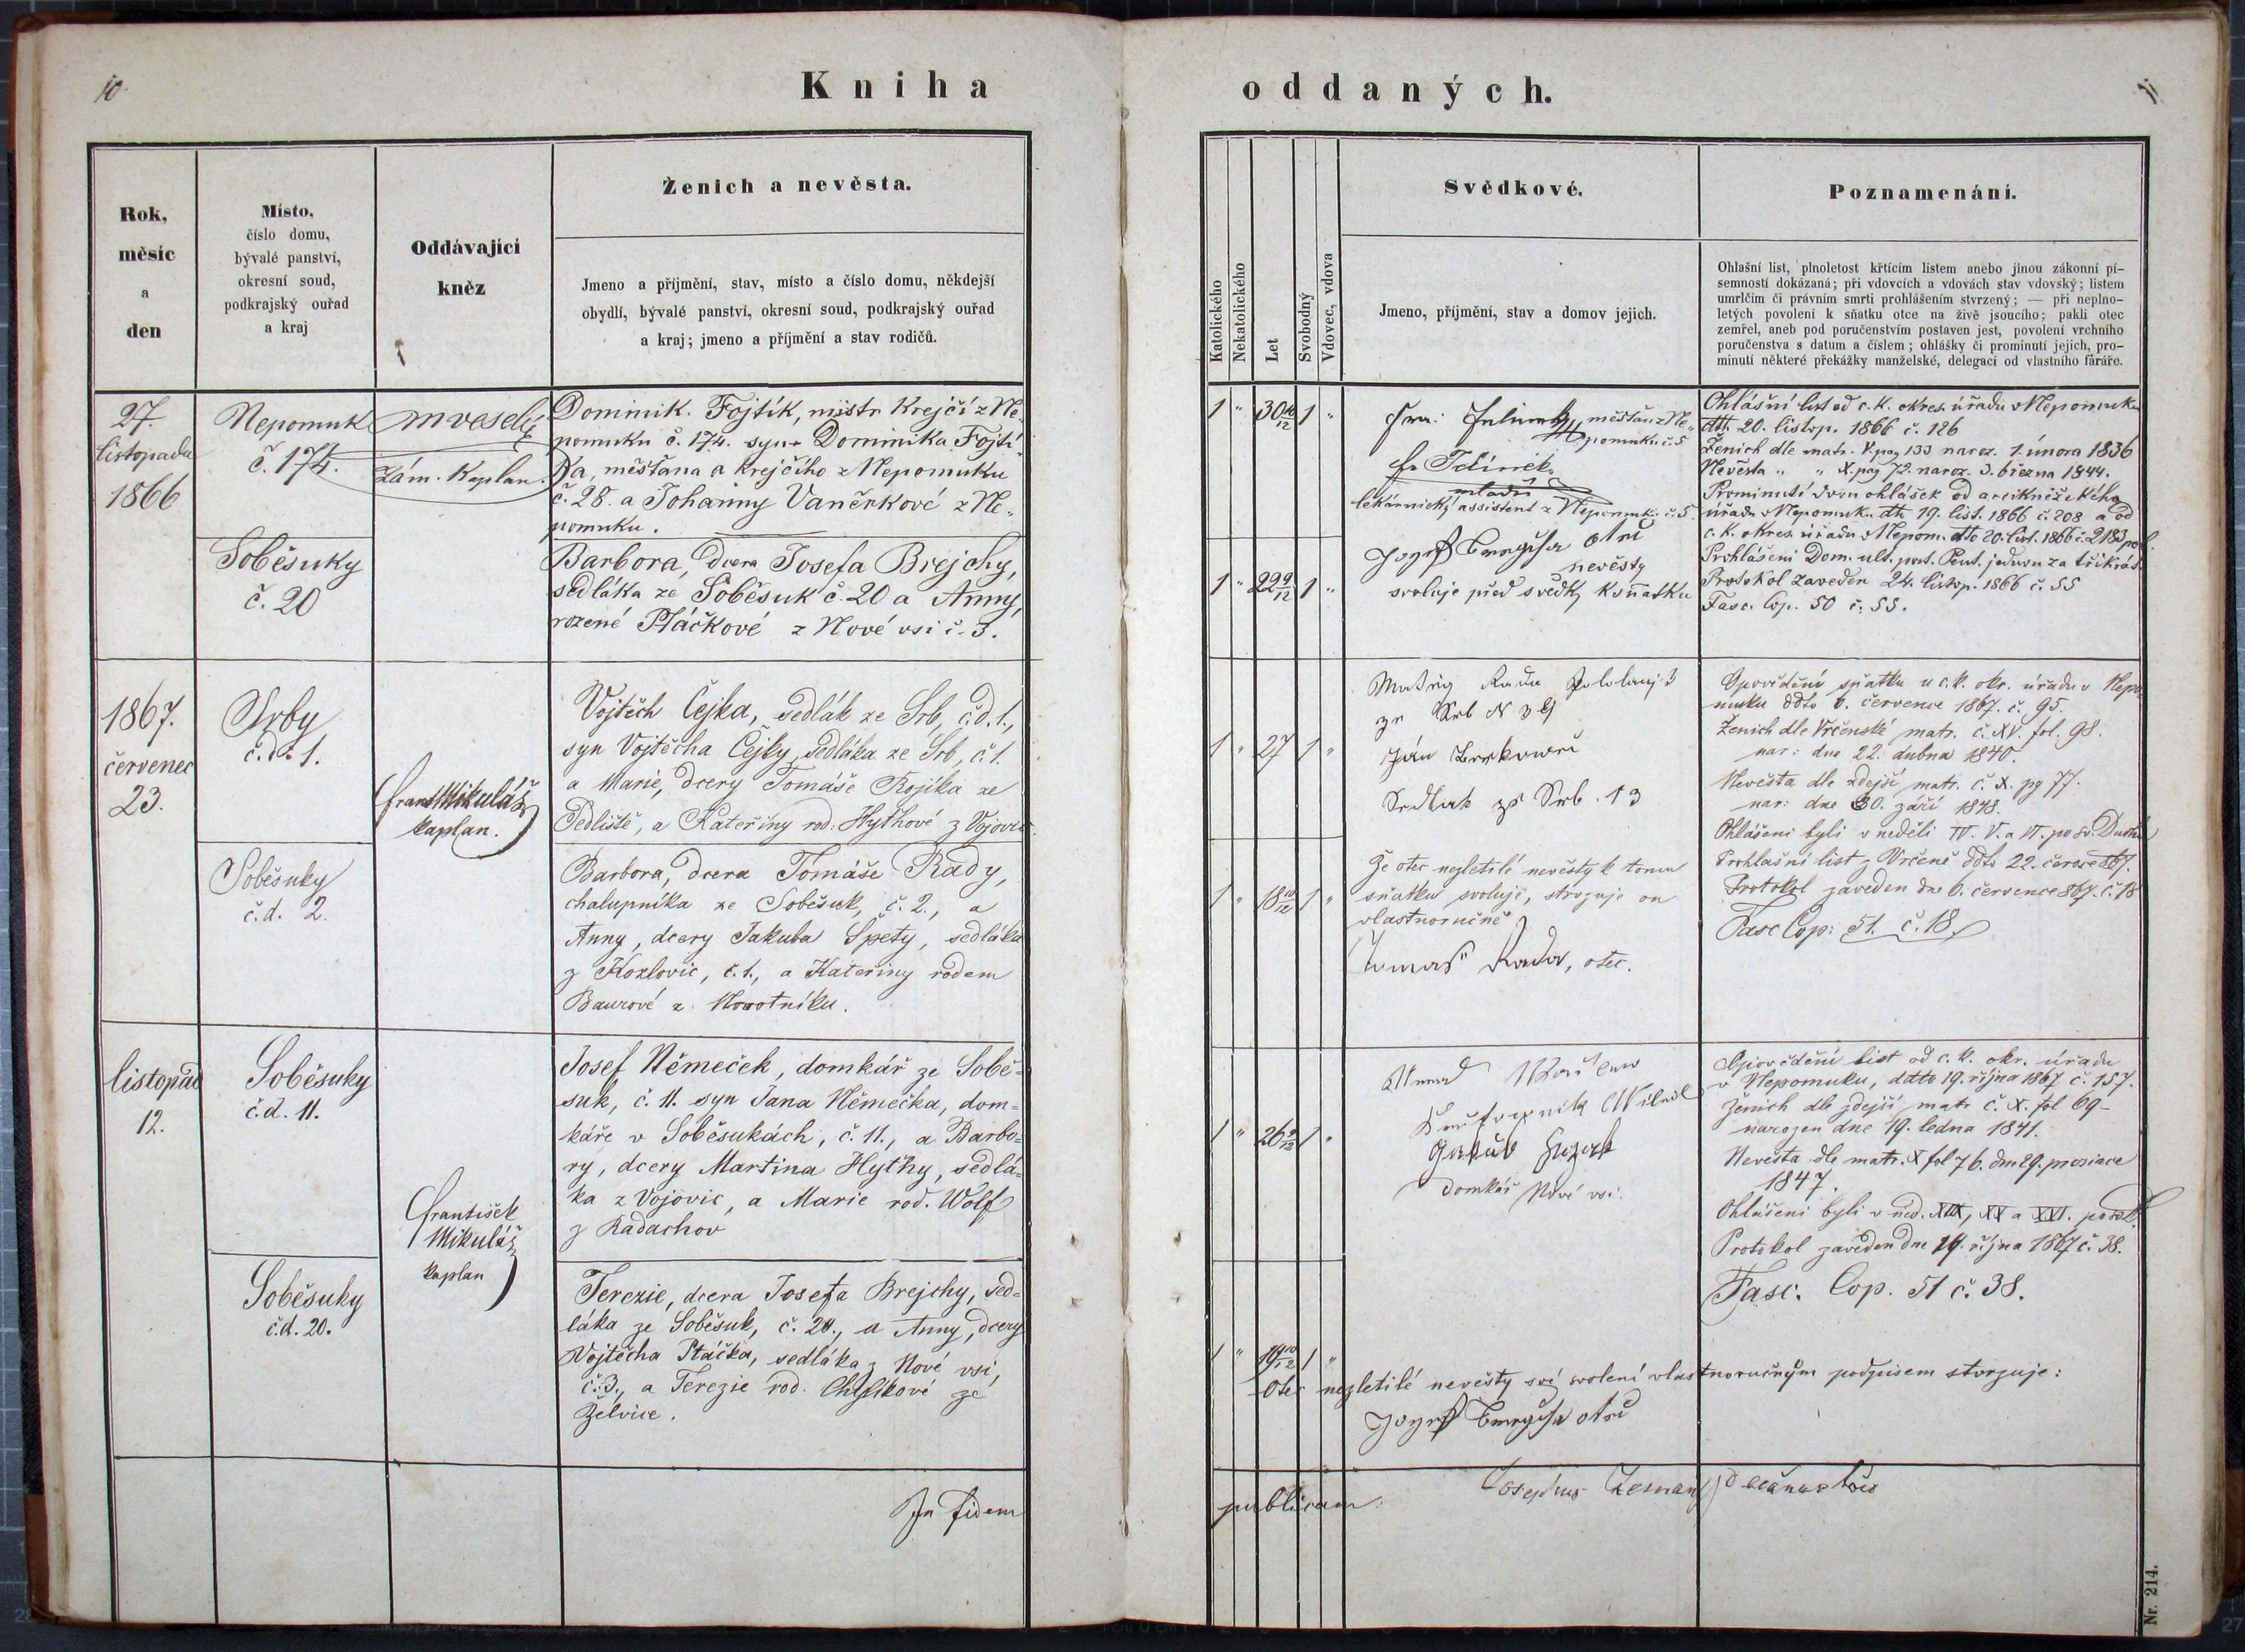 10
Kniha
oddaných.
11
Rok,
měsíc
a
den
Místo,
číslo domu,
bývalé panství,
okresní soud,
podkrajský ouřad
a kraj
Oddávající
kněz
Ženich a nevěsta.
Jmeno a přijmění, stav, místo a číslo domu, někdejší
obydlí, bývalé panství, okresní soud, podkrajský ouřad
a kraj; jmeno a příjmění a stav rodičů.
Katolického
Nekatolického
Let
Svobodný
Vdovec, vdova
Svědkové.
Jmeno, příjmění, stav a domov jejich.
Poznamenání.
Ohlašní list, plnoletost křtícím listem anebo jinou zákonní pí-
semností dokázaná; při vdovcích a vdovách stav vdovský; listem
umrlčím či právním smrti prohlášením stvrzený; — při neplno-
letých povolení k sňatku otce na živě jsoucího; pakli otec
zemřel, aneb pod poručenstvím postaven jest, povolení vrchního
poručenstva s datum a číslem; ohlášky či prominutí jejich, pro-
minutí některé překážky manželské, delegací od vlastního fáráře.
27.
listopadu
1866
Nepomuk
č. 174.
M Veselý
zám. Kaplan.
Dominik. Fojtík, mistr Krejčí z Ne-
pomuku č. 174. syn Dominika Fojtí-
ka, měšťana a krejčího z Nepomuku
č. 28. a Johanny Vaněrkové z Ne-
pomuku.
Soběsuky
č. 20
Barbora, dcera Josefa Brejchy,
sedláka ze Soběsuk č. 20 a Anny,
rozené Ptáčkové z Nové vsi č. 3.
1 " 30 1 "
měšťan z Ne-
pomuku č. 5
Jelínek
mladší
lékárnický assistent z Nepomuku č. 5.
otec
nevěsty
svoluje před svědky k sňatku
1 " 22 9/12 1 "
Ohlášní list od c. k. okres. úřadu v Nepomuku
dtt. 20. listop. 1866 č. 126
Ženich dle matr. V. pag 133 naroz. 1. února 1836
Nevěsta " " X. pag 72. naroz. 3. března 1844.
Prominutí dvou ohlášek od arcikněžského
úřadu v Nepomuku dtt. 19. list. 1866 č. 208 a od
c. k. okres. úřadu v Nepom. dto 20. list. 1866 č. 2183 pol.
Prohlášeni Dom. ult. post. Pent. jednou za třikrát
Protokol zaveden 24. listop. 1866 č. 55
Fasc. Cop. 50 č. 55.
1867.
červenec
23.
Srby
č. d. 1.
Frant Mikuláš
kaplan.
Vojtěch Čejka, sedlák ze Srb, č. d. 1.,
syn Vojtěcha Čejky, sedláka ze Srb, č. 1.
a Marie, dcery Tomáše Trojíka ze
Sedliště, a Kateřiny rod. Hythové z Vojovic.
Soběsuky
č. d. 2.
Barbora, dcera Tomáše Rady,
chalupníka ze Soběsuk, č. 2., a
Anny, dcery Jakuba Špety, sedláka
z Kozlovic, č. 1., a Kateřiny rodem
Baurové z Novotníku.
1 " 27 1 "
ze Srb N 39
Sedlak ze Srb. 13
1 " 18 10/12 1 "
Že otec nezletilé nevěsty k tomu
sňatku svoluje, stvrzuje on
vlastnoručně
Tomaš Rada, otec.
Opovědění sňatku u c. k. okr. úřadu v Nepo-
muku ddto 6. července 1867. č. 95.
Ženich dle Vrčenské matr. č. XV. fol. 98.
nar: dne 22. dubna 1840.
Nevěsta dle zdejší matr. č. X. pg 77.
nar: dne 30. září 1848.
Ohlášeni byli v neděli IV. V. a VI. po sv. Duchu
Prohlašní list z Vrčeně ddto 22. července 867.
Protokol zaveden dne 6. července 867. č. 18
Fasc Cop: 51. č. 18.
listopad
12.
Soběsuky
č. d. 11.
František
Mikuláš
kaplan
Josef Němeček, domkář ze Sobě-
suk, č. 11. syn Jana Němečka, dom-
káře v Soběsukách, č. 11., a Barbo-
ry, dcery Martina Hythy, sedlá-
ka z Vojovic, a Marie rod. Wolf
z Radachov
Soběsuky
č. d. 20.
Terezie, dcera Josefa Brejchy, sed-
láka ze Soběsuk, č. 20., a Anny, dcery
Vojtěcha Ptáčka, sedláka z Nové vsi,
č. 3., a Terezie rod. Chylíkové ze
Želvice.
1 " 26 9/12 1 "
Jakub
domkář Nové vsi.
1 " 19 10/12 1 "
Otec nezletilé nevěsty své svolení vlastnoručným podpisem stvrzuje:
Opovědění list od c. k. okr. úřadu
v Nepomuku, ddto 19. října 1867 č. 157.
Ženich dle zdejší matr. č. X. fol 69-
narozen dne 19. ledna 1841.
Nevěsta dle matr. X fol 76. dne 29. prosince
1847.
Ohlášeni byli v ned. XIX, XX a XXI. po sv. D.
Protokol zaveden dne 24. října 1867 č. 38.
Fasc. Cop. 51 č. 38.
In fidem
publicam:
Josephus Zeman
Nr. 214.